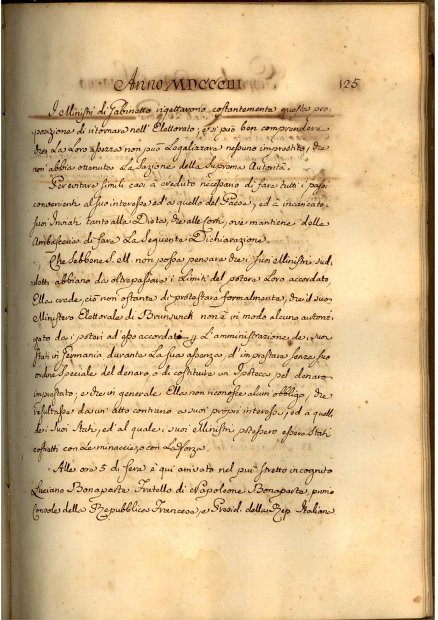 Anno MDCCCIII
125
I Ministri di Gabinetto rigettarono costantemente questa pro-
posizione di ritornare nell'Elettorato; e si può ben comprendere
che la loro assenza non può legalizzare nessuno imprestito, che
non abbia ottenuta la sazione della suprema Autorità.
Per evitare simili casi à creduto necessario di fare tutti i passi
convenienti al suo interesse ed a quello del Paese, ed à incaricato i
suoi Inviati tanto alla Dieta, che alle Corti, ove mantiene delle
Ambascierie di fare la seguente Dichiarazione.
Che sebbene S. M. non possa pensare che i suoi Ministri sud-
detti abbiano da oltrepassare i limiti del potere loro accordato
Ella crede, ciò non ostante di protestare formalmente, che il suo
Ministero Elettorale di Brunswick non è in modo alcuno autoriz-
zato dai poteri ad esso accordati p. l'amministrazione de' suoi
stati in Germania durante la sua assenza, d'imprestare senza suo
ordine speciale del denaro, o di costituire un Ipoteca pel denaro
imprestato; e che in generale Ella non riconosce alcun obbligo, che
risultasse da un' atto contrario a suoi propri interessi, od a quelli
dei suoi Stati, ed al quale i suoi Ministri potessero essere stati
costretti con le minaccie, o con la forza.
Alle ora 5 di sera è qui arrivato nel più stretto incognito
Luciano Bonaparte Fratello di Napoleone Bonaparte, primo
Console della Repubblica Francese, e Presid. della Rep. Italiana